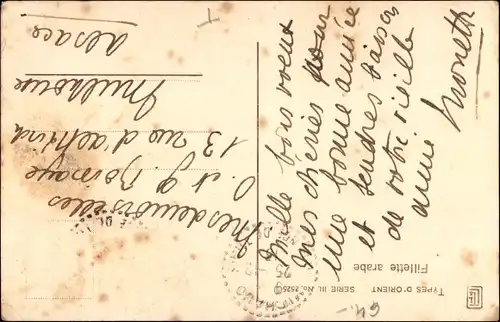 TYPES D'ORIENT SERIE III. No.
Fillette arabe
Mille bons voeux
mes chéries pour
une bonne année
et tendres baisers
de votre vieille
amie Monette
Mesdemoiselles
13 rue d'altkirch
Mulhouse
alsace